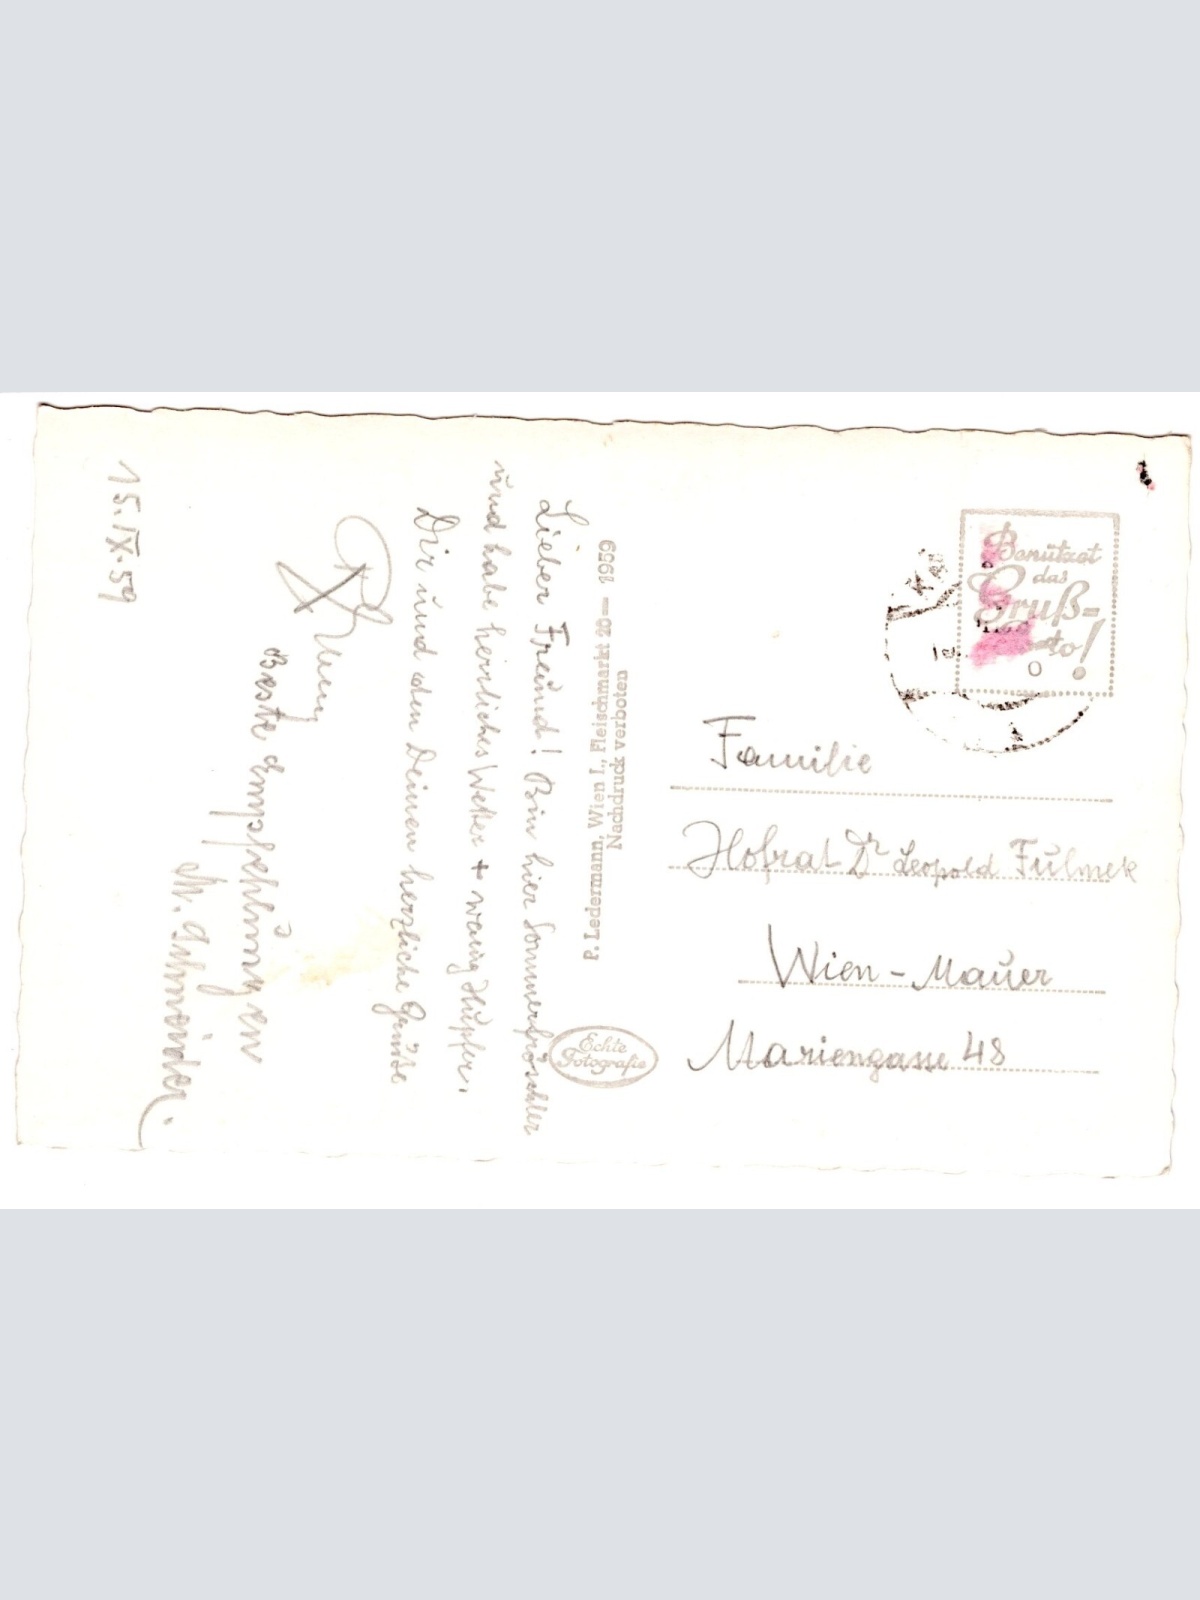 15.IX.59
Lieber Freund! Bin hier Sommerfrischler
und habe herrliches Wetter + wenig Hüpfer.
Dir und den Deinen herzliche Grüße
Beste Empfehlungen
M. Schneider.
P. Ledermann, Wien I., Fleischmarkt 20 — 1959
Nachdruck verboten
Echte
Fotografie
Benützet
das
Gruß=
to!
Familie
Hofrat Dr Leopold Fulmek
Wien - Mauer
Mariengasse 48